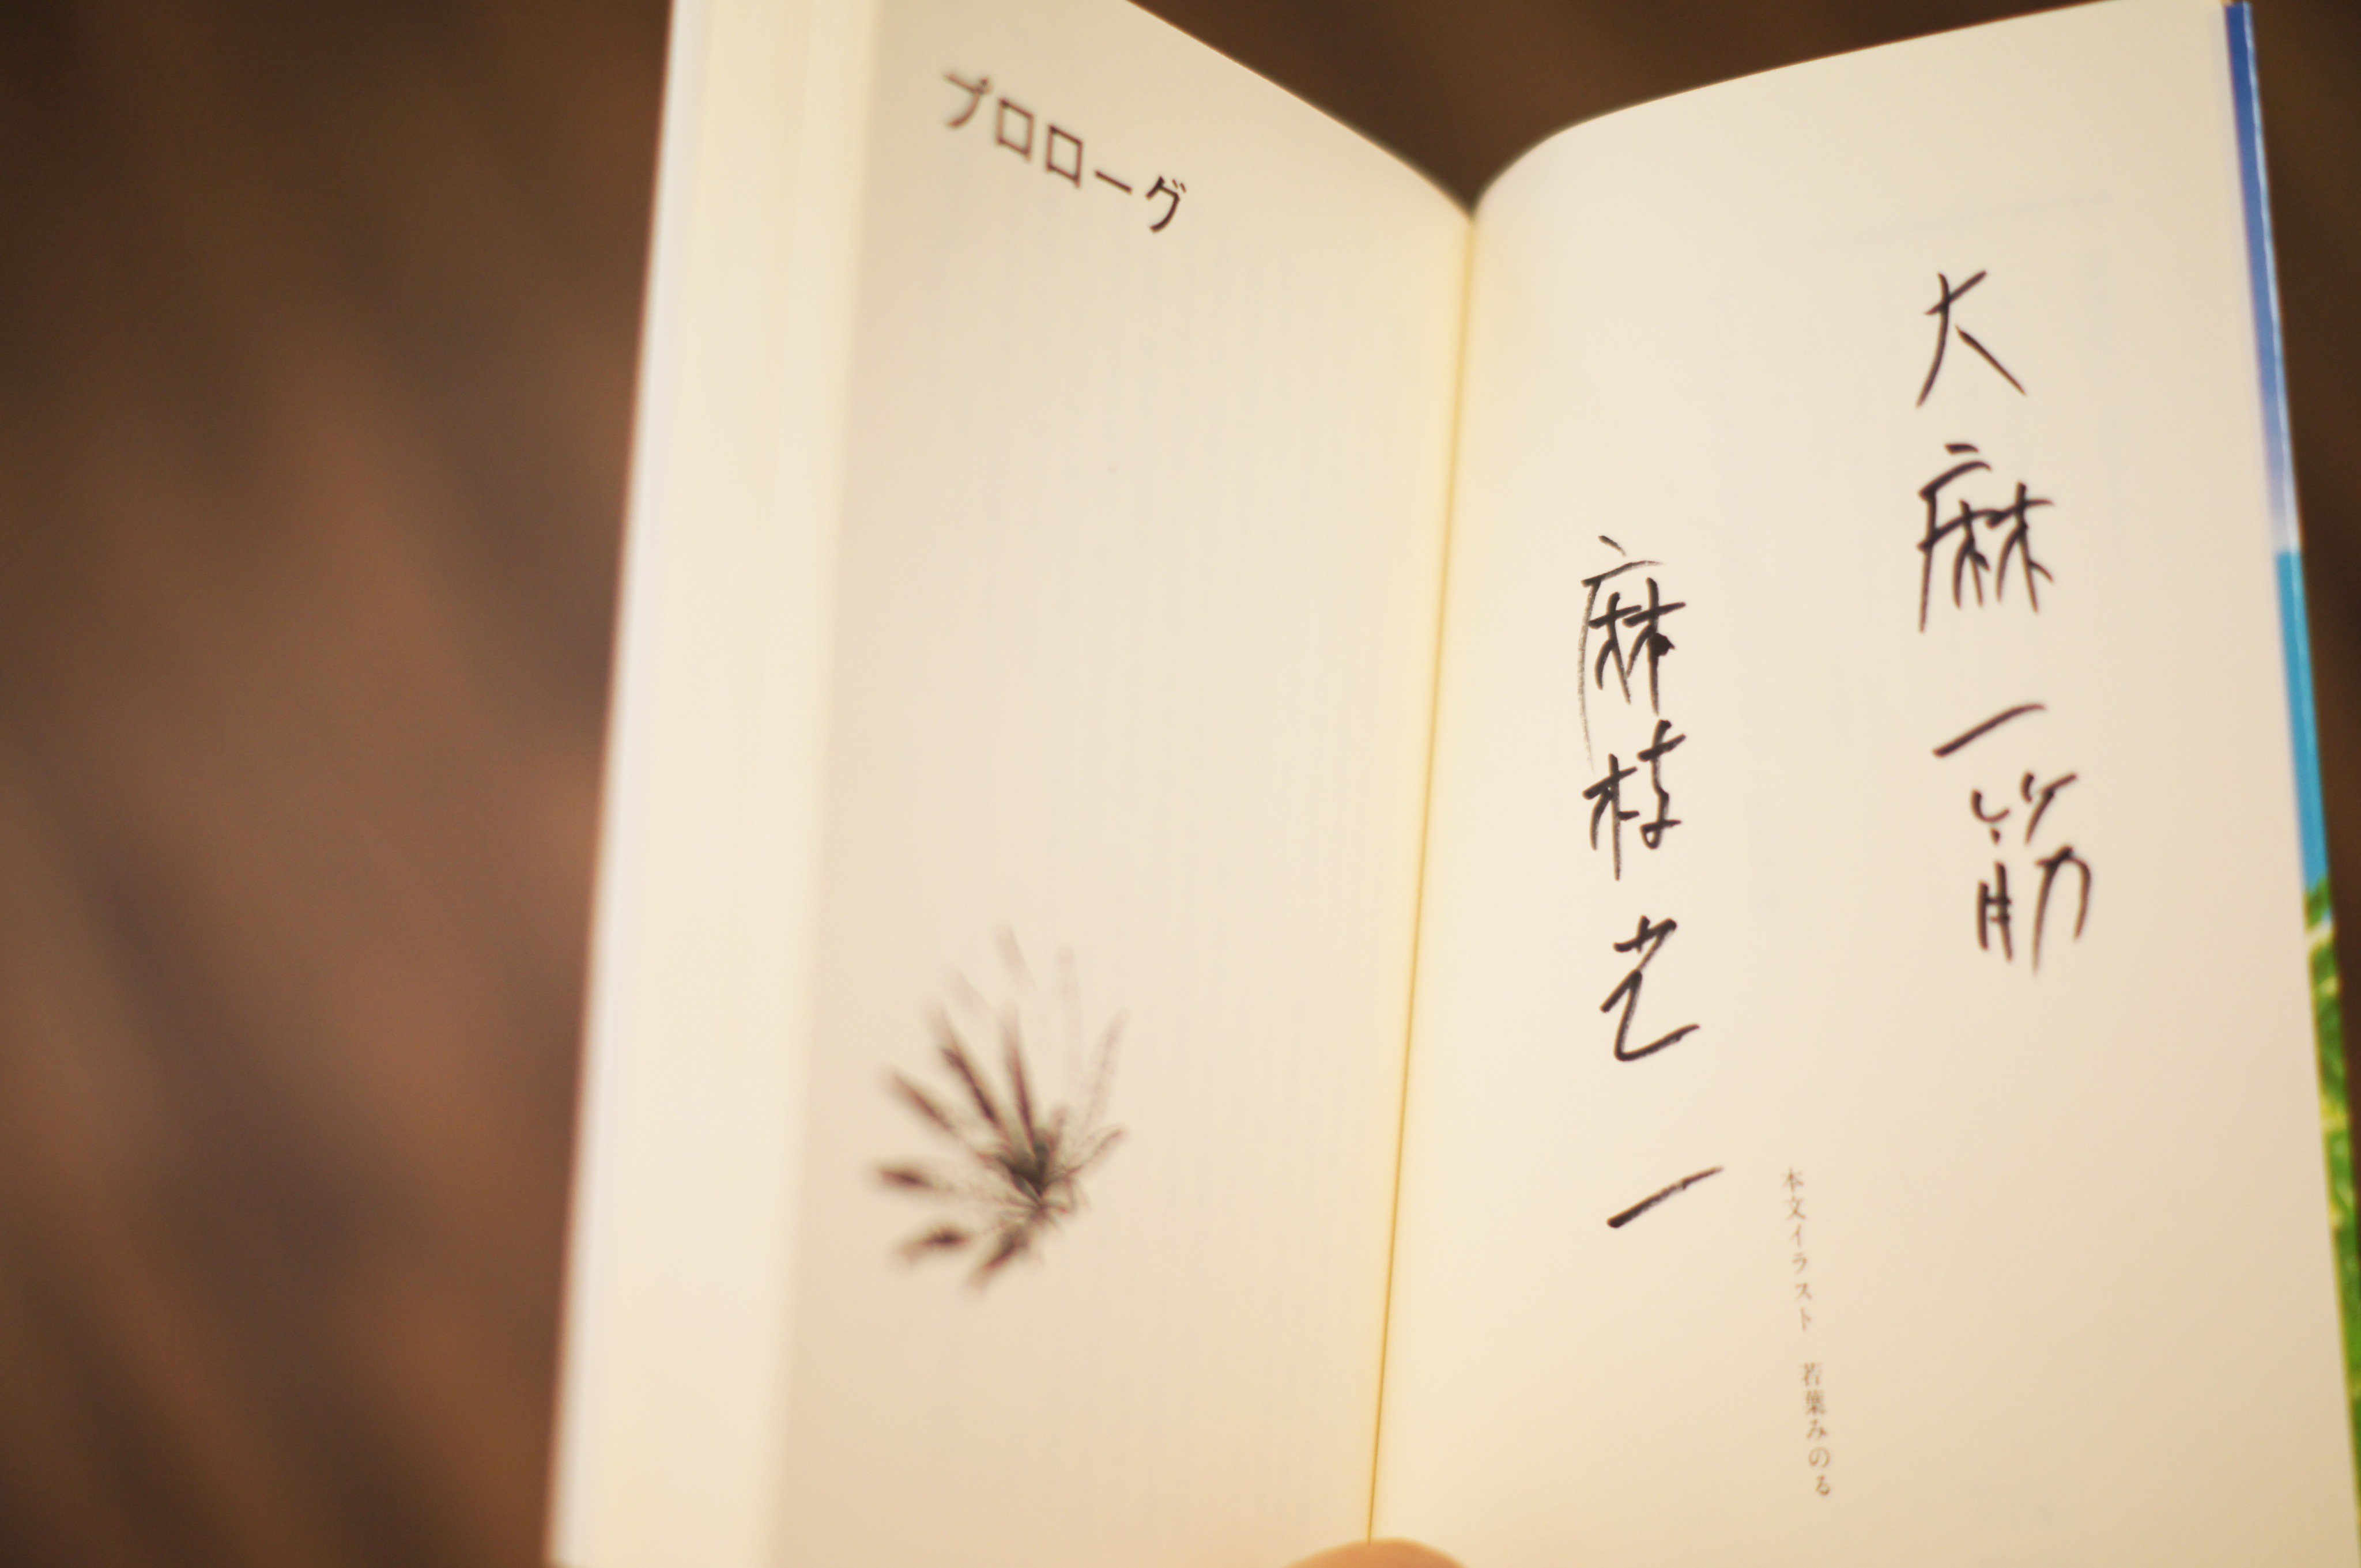 大麻一筋
本文イラスト 若葉みのる
麻枝光一
プロローグ